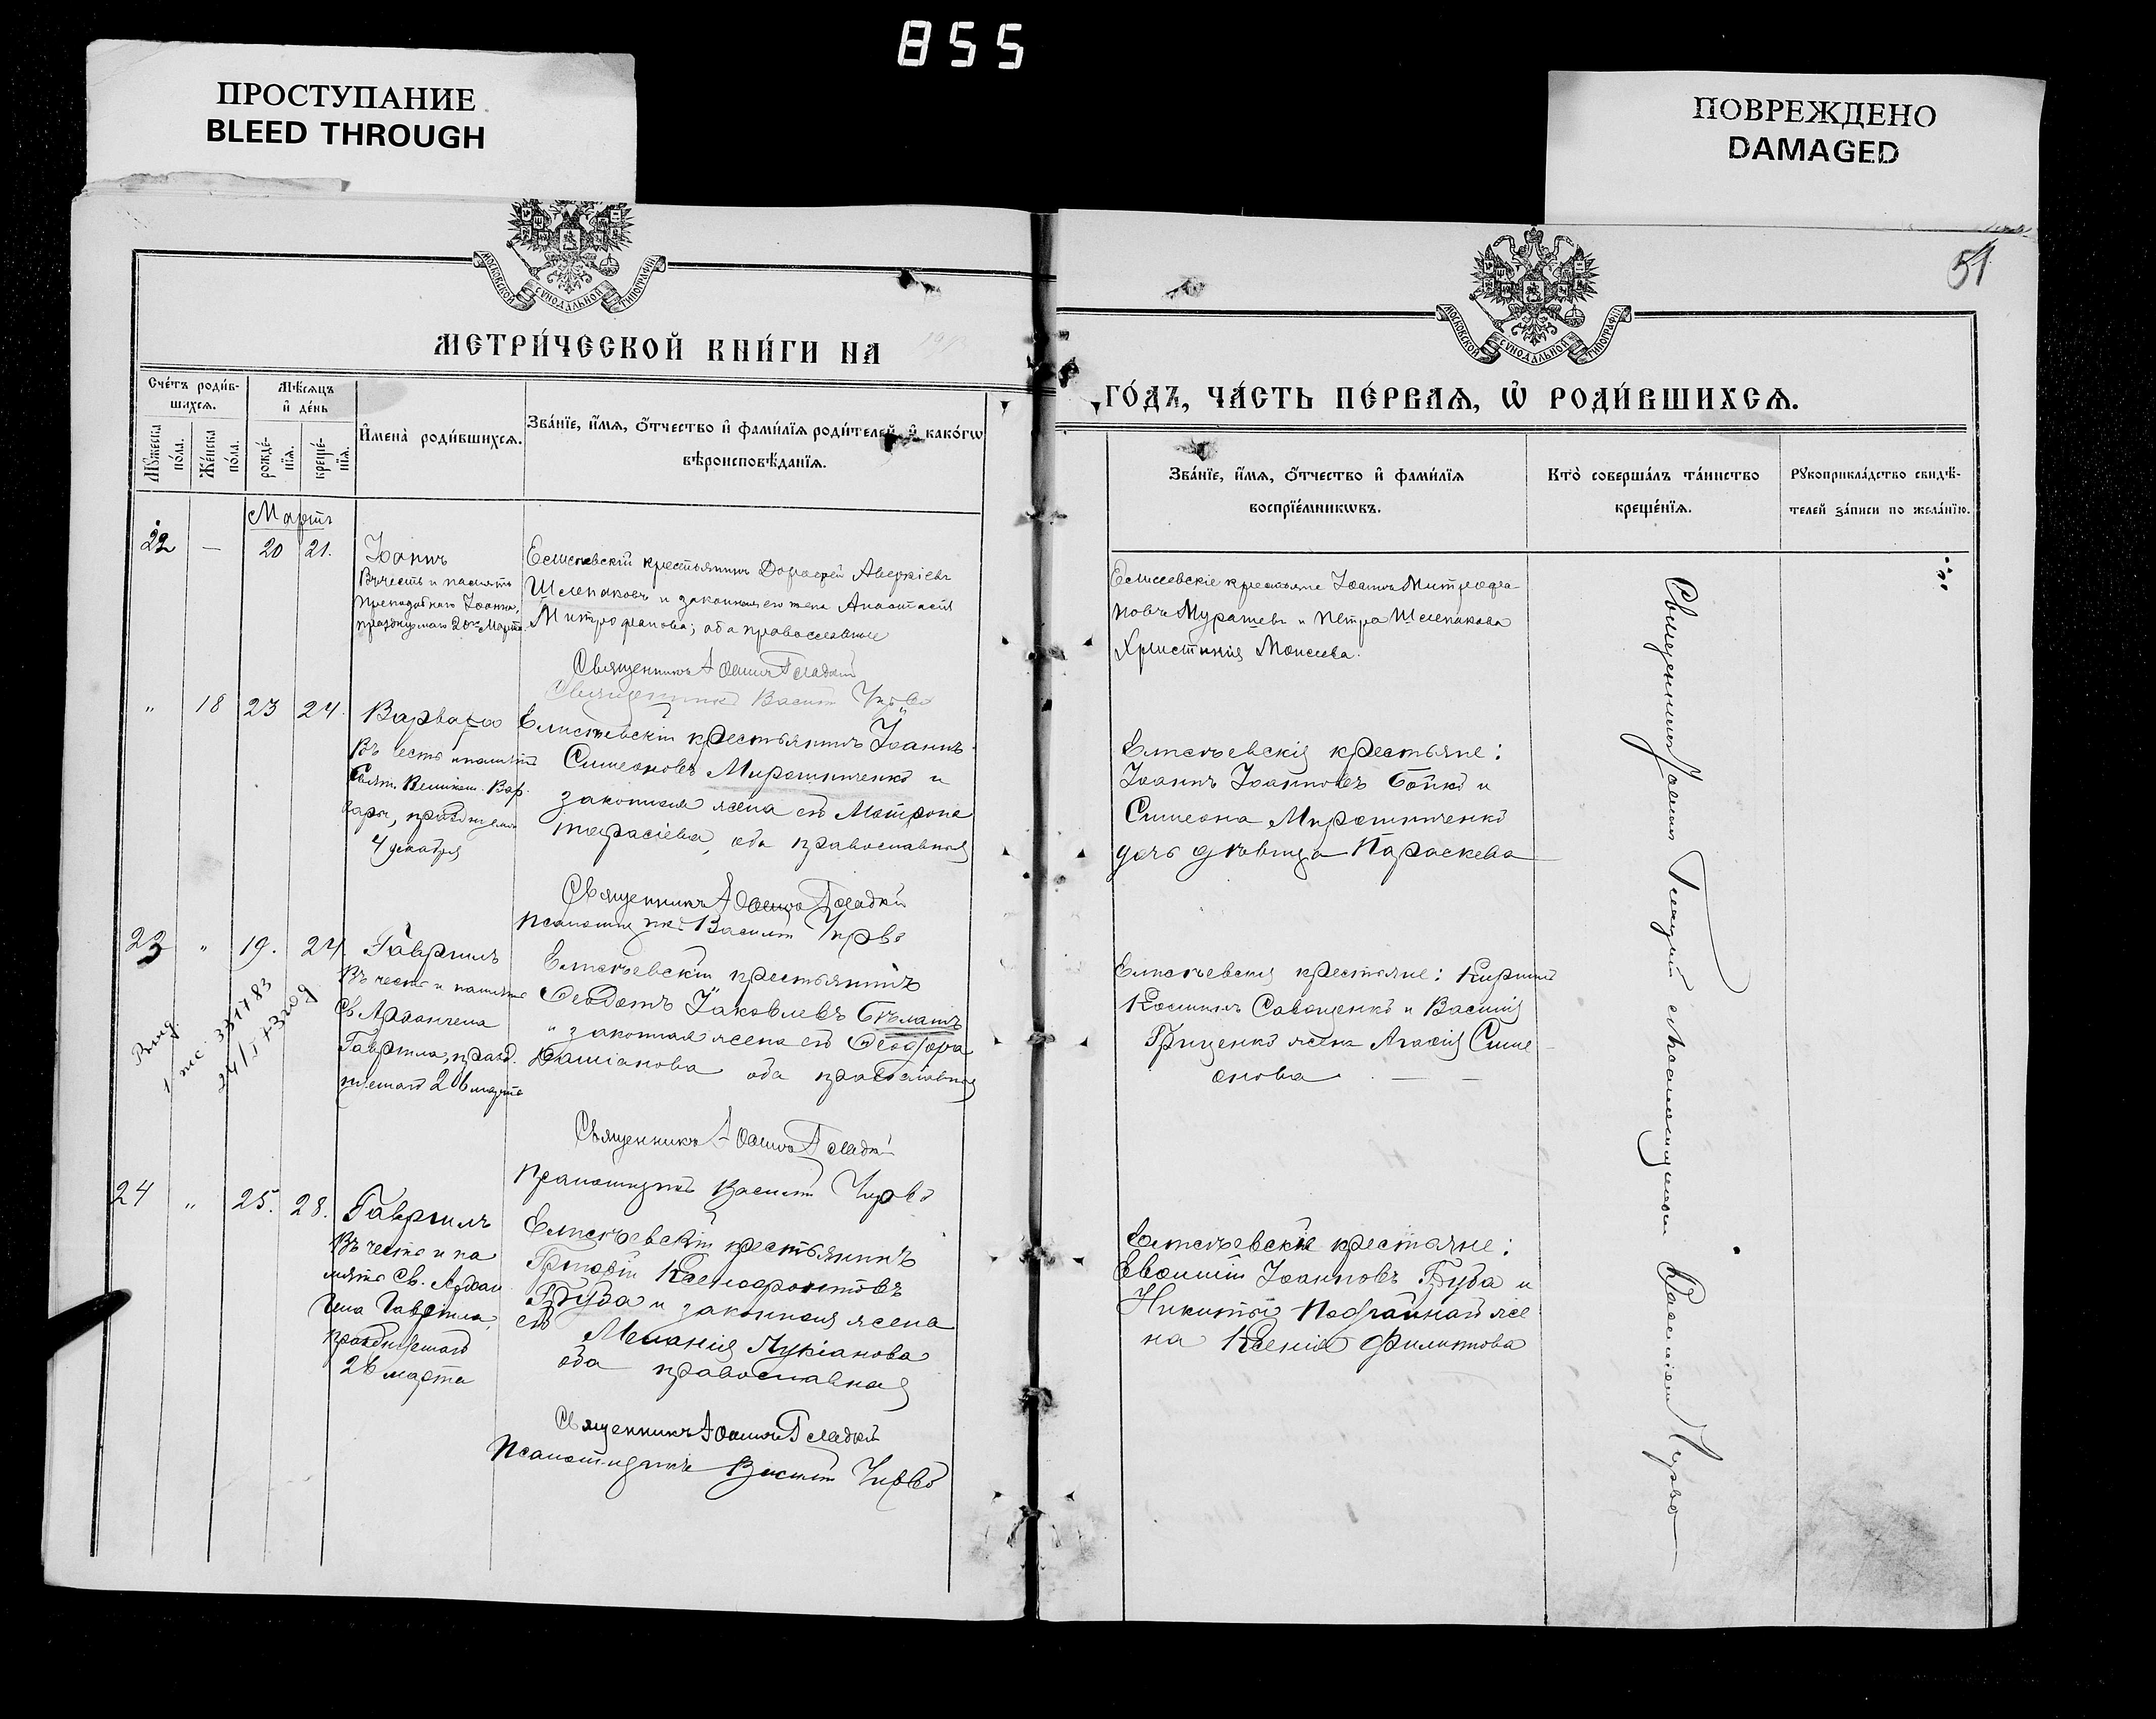 855
ПРОСТУПАНИЕ
BLEED THROUGH
ПОВРЕЖДЕНО
DAMAGED
51
МОСКОВСКОЙ СѴНОДАЛЬНОЙ ТИПОГРАФІИ
МОСКОВСКОЙ СѴНОДАЛЬНОЙ ТИПОГРАФІИ
МЕТРИ́ЧЕСКОЙ КНИ́ГИ НА
ГО́ДЪ, ЧА́СТЬ ПЕ́РВАѦ, Ѡ҆ РОДИ́ВШИХСѦ.
Сче́тъ роди́в-
шихсѧ.
Мꙋ́жеска по́ла.
Же́нска по́ла.
Мѣ́сѧцъ
и҆ де́нь
рожде́-
нїѧ.
креще́-
нїѧ.
И҆мена̀ роди́вшихсѧ.
Зва́нїе, и҆́мѧ, ѻ҆́тчество и҆ фами́лїѧ роди́телей, и҆ како́гѡ
вѣроисповѣ́данїѧ.
Зва́нїе, и҆́мѧ, ѻ҆́тчество и҆ фами́лїѧ
воспрїе́мникѡвъ.
Кто̀ соверша́лъ та́инство
креще́нїѧ.
Рꙋкоприкла́дство свидѣ́-
телей за́писи по жела́нїю.
Мартъ
22 — 20 21.
Іоаннъ
Въ честь и память
Преподобнаго Іоанна,
празднуемаго 20го Марта.
Елисеевскій крестьянинъ Дорофей Аверкіевъ
Шелепаковъ и законная его жена Анастасія
Митрофанова; оба православные
Священникъ Іоаннъ Гладкій
Василій Чирво
Елисеевскіе крестьяне Іоаннъ Митрофа-
новъ Мурашевъ и Петра Шелепакова
Христинія Моисеева.
" 18 23 24.
Варвара
Въ честь и память
Святы. Великом. Вар-
вары, празднуемой
4 декабря
Елисѣевскій крестьянинъ Іоаннъ
Симеоновъ Мирошниченко и
законная жена его Матрона
Тарасіева, оба православныя
Священникъ Іоаннъ Гладкій
Псаломщикъ Василій Чирво
Елисѣевскія крестьяне:
Іоаннъ Іоанновъ Бойко и
Симеона Мирошниченко
дочь дѣвица Параскева
23 " 19. 24.
Гавріилъ
Въ честь и память
Св. Архангела
Гавріила, празд-
нуемаго 26 марта
Елисѣевскій крестьянинъ
Ѳеодотъ Іаковлевъ Бѣлашъ
и законная жена его Ѳеодора
Даміанова оба православныя
Священникъ Іоаннъ Гладкій
Псаломщикъ Василій Чирво
Елисѣевскія крестьяне: Кириллъ
Косминъ Савощенко и Василія
Гриценко жена Агафія Симе-
онова
24 " 25. 28.
Гавріилъ
Въ честь и па
мять Св. Архан
гела Гавріила,
празднуемаго
26 марта
Елисѣевскій крестьянинъ
Григорій Ксенофонтовъ
Груба и законная жена
его Меланія Лукіанова
оба православныя
Священникъ Іоаннъ Гладкій
Псаломщикъ Василій Чирво
Елисѣевскіе крестьяне:
Евѳимій Іоанновъ Груба и
Никиты Подгайнай же
на Ксенія Филиппова
Священникъ Іоаннъ Гладкій съ Псаломщикомъ Василіемъ Чирво